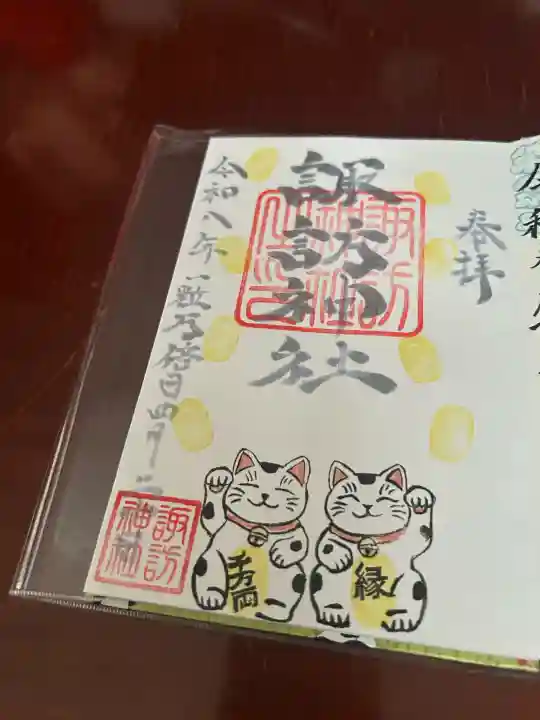 奉拝
諏訪神社
諏訪神社之印
令和八年 一粒万倍日 四月
諏訪神社
千万両
縁